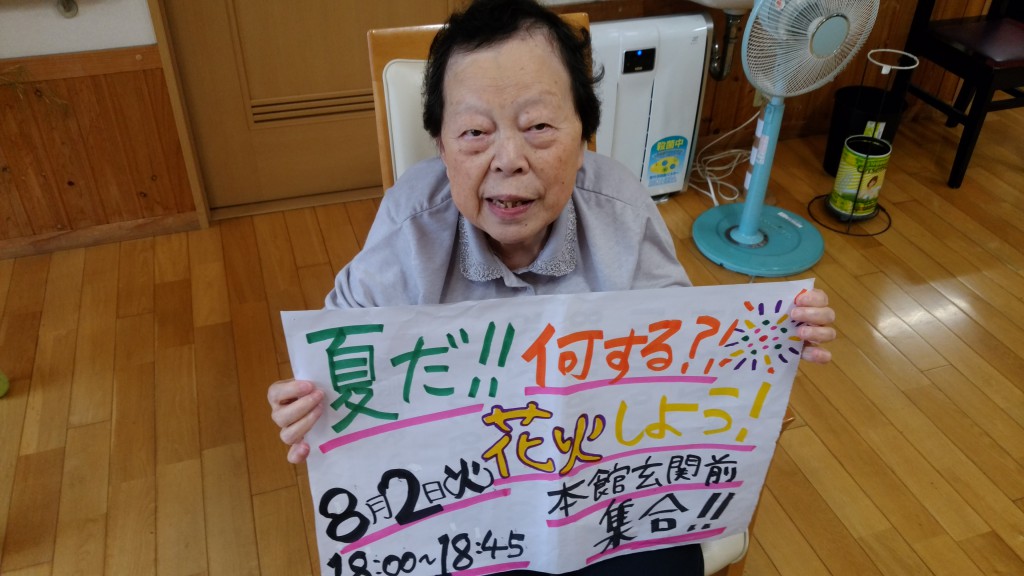 夏だ!! 何する?!
花火しよう!
8月2日㈫ 本館玄関前
18:00~18:45 集合!!
殺菌中